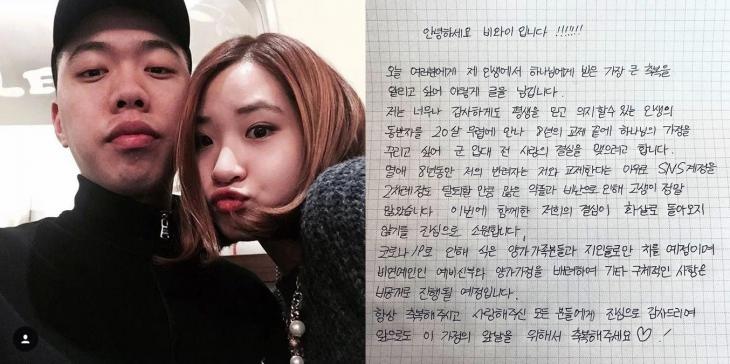 안녕하세요 비와이 입니다 !!!!!!!
오늘 여러분에게 제 인생에서 하나님에게 받은 가장 큰 축복을
알리고 싶어 이렇게 글을 남깁니다.
저는 너무나 감사하게도 평생을 믿고 의지할수 있는 인생의
동반자를 20살 무렵에 만나 8년의 교제 끝에 하나님의 가정을
꾸리고 싶어 군 입대 전 사랑의 결실을 맺으려고 합니다.
연애 8년동안 저의 반려자는 저와 교제한다는 이유로 SNS계정을
2차례정도 탈퇴할 만큼 많은 악플과 비난으로 인해 고생이 정말
많았습니다 이번에 함께한 저희의 결심이 화살로 돌아오지
않기를 진심으로 소원합니다.
코로나19로 인해 식은 양가가족분들과 지인들로만 치를 예정이며
비연예인인 예비신부와 양가가정을 배려하여 기타 구체적인 사항은
비공개로 진행될 예정입니다.
항상 축복해주시고 사랑해주신 모든 분들에게 진심으로 감사드리며
앞으로도 이 가정의 앞날을 위해서 축복해주세요 ♡ !